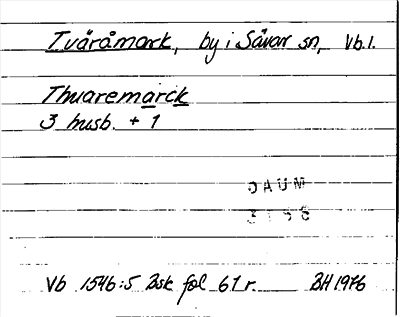 Tväråmark, by i Sävar sn, Vb.l.
Thuaremarck
3 husb. + 1
DAUM
Vb 1546:5 Bsk fol 61 r. BH 1976